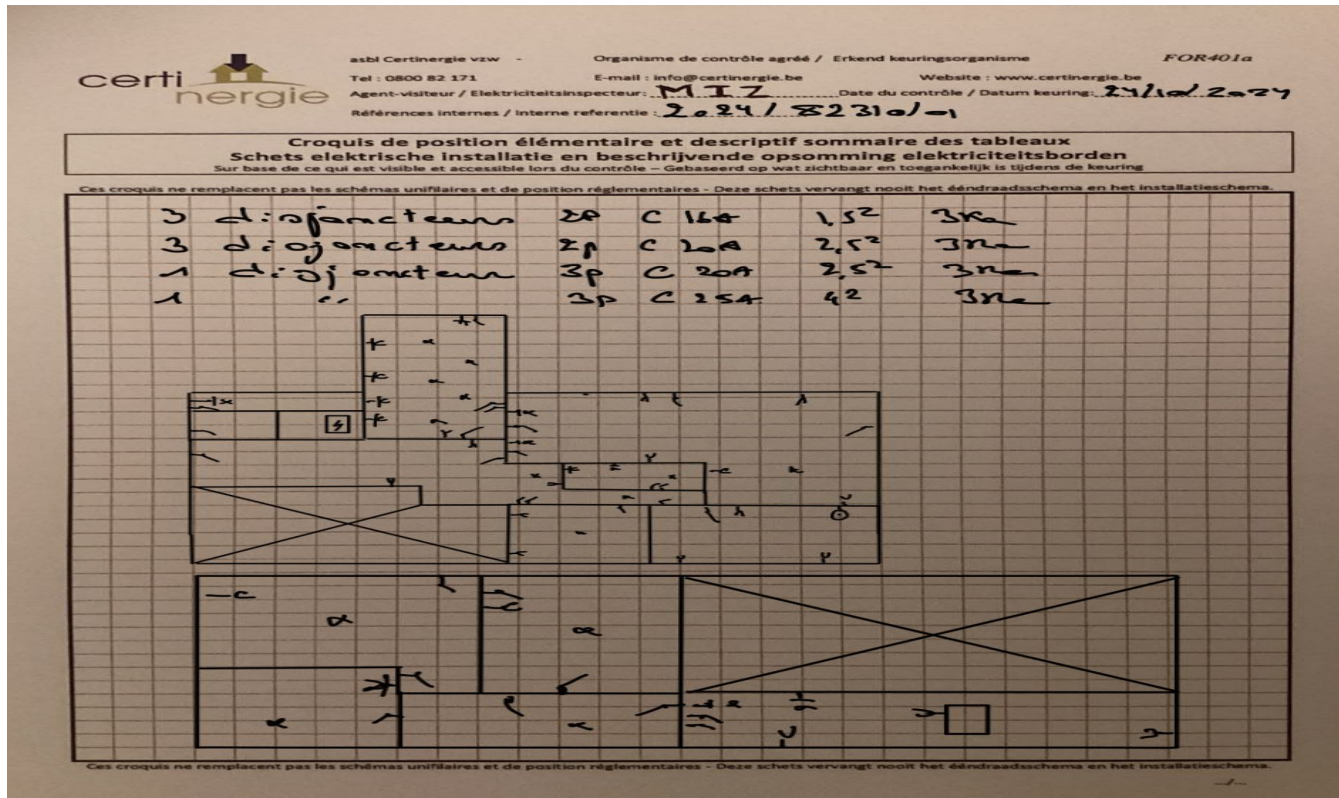 certinergie
asbl Certinergie vzw - Organisme de contrôle agréé / Erkend keuringsorganisme FOR401a
Tel : 0800 82 171 E-mail : info@certinergie.be Website : www.certinergie.be
Agent-visiteur / Elektriciteitsinspecteur: MIZ Date du contrôle / Datum keuring: 24/10/2024
Références internes / Interne referentie : 2024/82310/01
Croquis de position élémentaire et descriptif sommaire des tableaux
Schets elektrische installatie en beschrijvende opsomming elektriciteitsborden
Sur base de ce qui est visible et accessible lors du contrôle – Gebaseerd op wat zichtbaar en toegankelijk is tijdens de keuring
Ces croquis ne remplacent pas les schémas unifilaires et de position réglementaires - Deze schets vervangt nooit het ééndraadsschema en het installatieschema.
3 disjoncteurs 2P C 16A 1,5² 3Ka
3 disjoncteurs 2p C 20A 2,5² 3Ka
1 disjoncteur 3p C 20A 2,5² 3Ka
1 " 3p C 25A 4² 3Ka
Ces croquis ne remplacent pas les schémas unifilaires et de position réglementaires - Deze schets vervangt nooit het ééndraadsschema en het installatieschema.